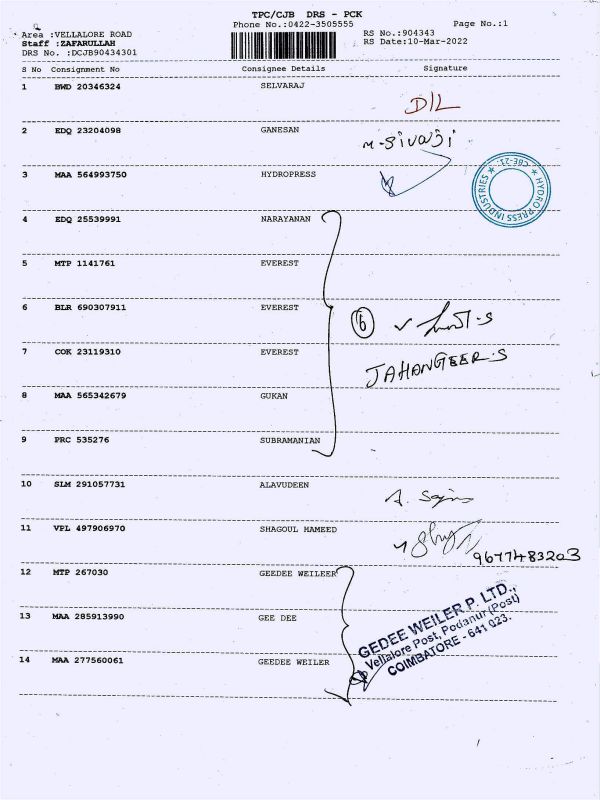 TPC/CJB DRS - PCK
Phone No.:0422-3505555 Page No.:1
Area :VELLALORE ROAD RS No.:904343
Staff :ZAFARULLAH RS Date:10-Mar-2022
DRS No. :DCJB90434301
S No Consignment No Consignee Details Signature
1 BWD 20346324 SELVARAJ
D/L
2 EDQ 23204098 GANESAN
M-Sivaji
3 MAA 564993750 HYDROPRESS
HYDRO PRESS INDUSTRIES ★ CBE-21. ★
4 EDQ 25539991 NARAYANAN
5 MTP 1141761 EVEREST
6 BLR 690307911 EVEREST
6
7 COK 23119310 EVEREST
JAHANGEER.S
8 MAA 565342679 GUKAN
9 PRC 535276 SUBRAMANIAN
10 SLM 291057731 ALAVUDEEN
11 VPL 497906970 SHAGOUL HAMEED
9677483203
12 MTP 267030 GEEDEE WEILEER
13 MAA 285913990 GEE DEE
GEDEE WEILER P. LTD.,
Vellalore Post, Podanur (Post)
COIMBATORE - 641 023.
14 MAA 277560061 GEEDEE WEILER